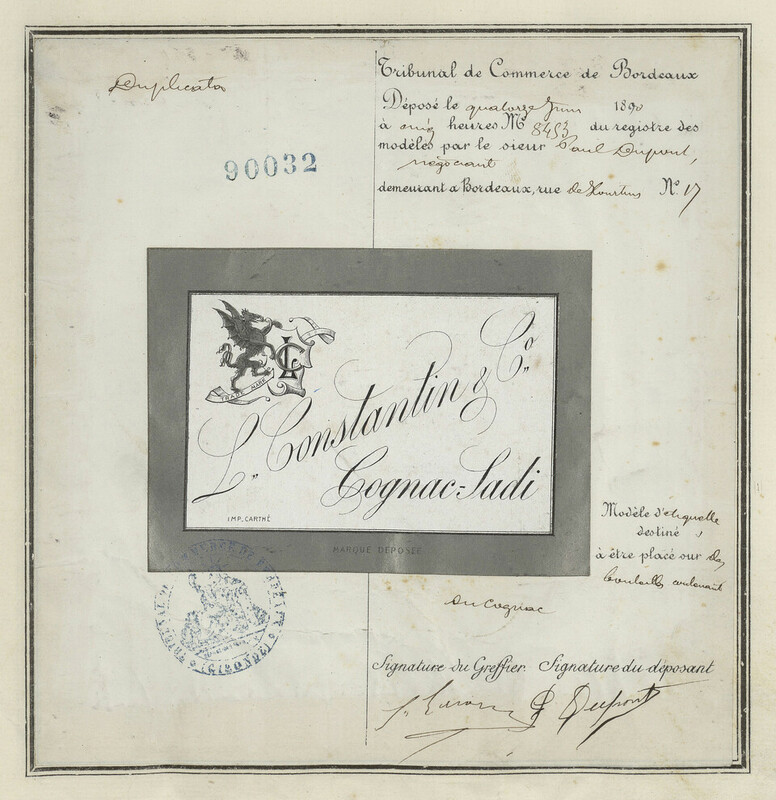 Duplicata
90032
Tribunal de Commerce de Bordeaux
Déposé le quatorze Juin 1890
à onze heures No 8453 du registre des
modèles par le sieur Paul Dupont,
négociant
demeurant a Bordeaux, rue de No. 17
TRADE MARK
LC
L. Constantin & Co.
Cognac-Sadi
IMP. CARTHÉ
MARQUE DEPOSÉE
Modèle d'etiquette
destiné
à être placé sur des
bouteilles contenant
du Cognac
TRIBUNAL DE COMMERCE DE BORDEAUX
(GIRONDE)
Signature du Greffier. Signature du déposant
Dupont